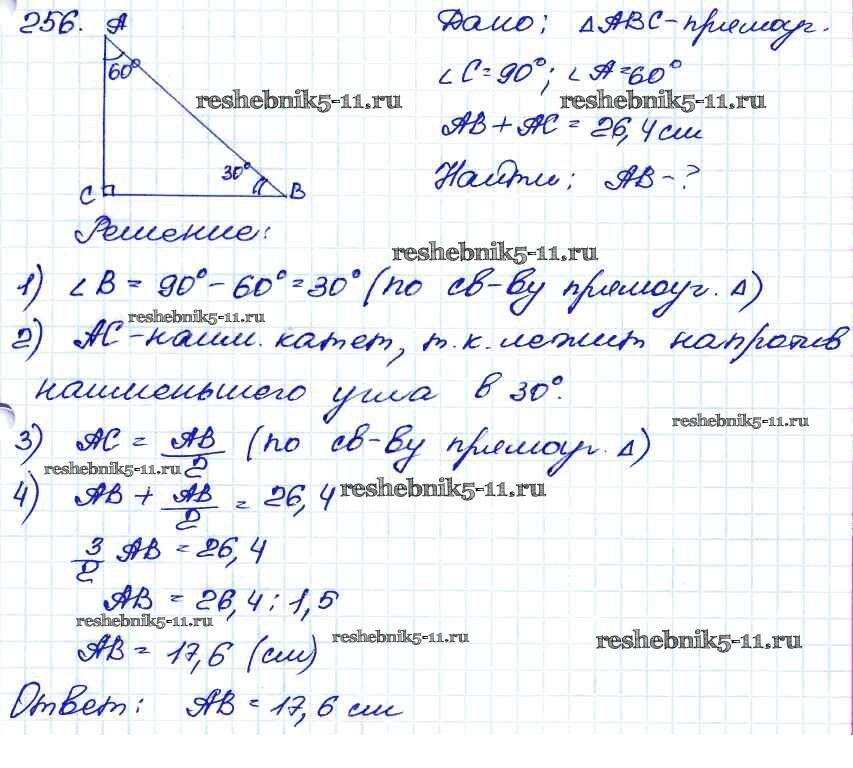 256.
A
60°
30°
C
B
Дано: ΔABC-прямоуг.
∠C=90°; ∠A=60°
reshebnik5-11.ru
reshebnik5-11.ru
AB+AC=26,4см
Найти: AB-?
Решение:
reshebnik5-11.ru
1) ∠B = 90°-60°=30° (по св-ву прямоуг. Δ)
reshebnik5-11.ru
2) AC-наим. катет, т.к. лежит напротив
наименьшего угла в 30°.
reshebnik5-11.ru
3) AC = AB/2 (по св-ву прямоуг. Δ)
reshebnik5-11.ru
4) AB + AB/2 = 26,4
reshebnik5-11.ru
3/2 AB = 26,4
AB = 26,4:1,5
reshebnik5-11.ru
reshebnik5-11.ru
reshebnik5-11.ru
AB = 17,6 (см)
Ответ: AB = 17,6 см